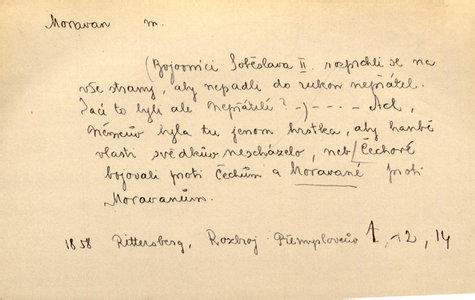 Moravan m.
(Bojovníci Soběslava II. rozprchli se na
vše strany, aby nepadli do rukou nepřátel.
Jací to byli ale nepřátelé? -)---- Ach,
Němcův byla tu jenom hrstka, aby hanbě
vlasti svědkův nescházelo, neb Čechové
bojovali proti Čechům a Moravané proti
Moravanům.
1858 Rittersberg, Rozbroj Přemyslovcův 1, 12, 14